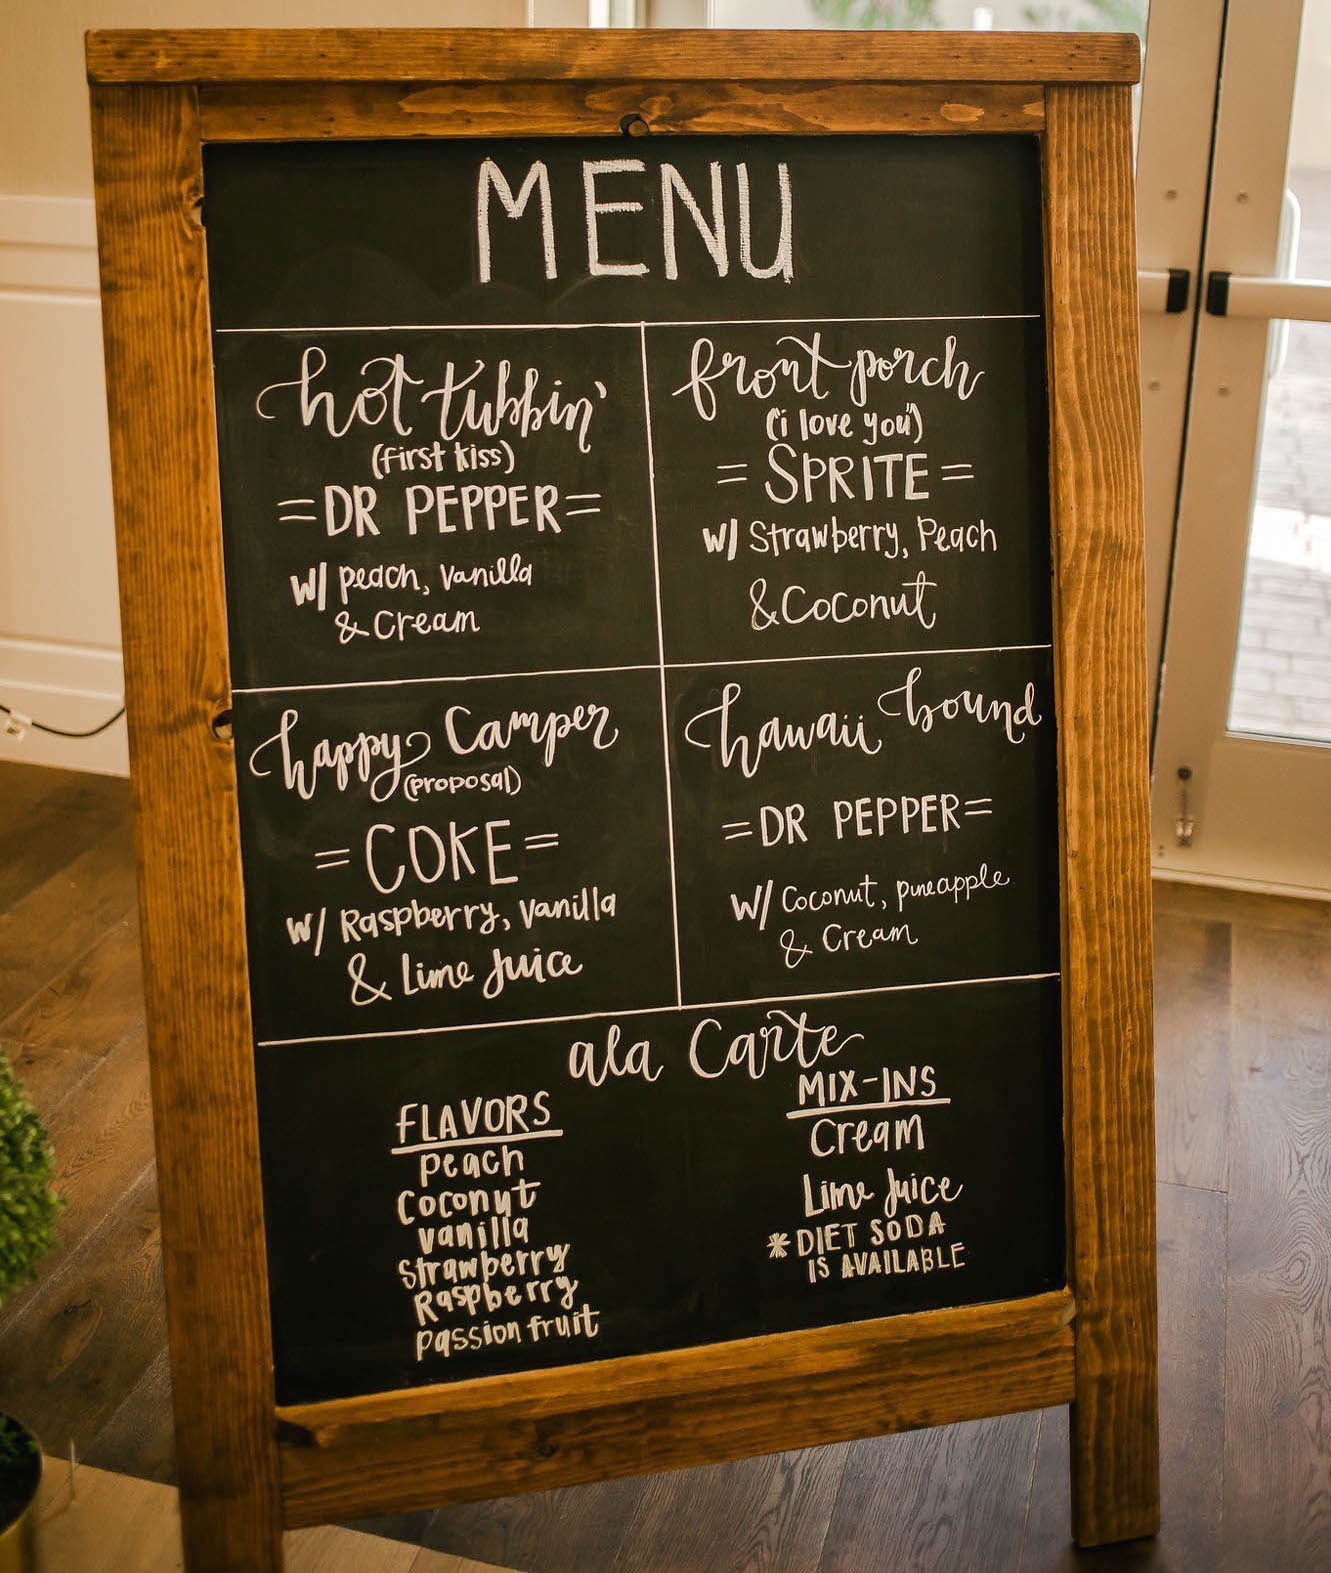 MENU
hot tubbin'
(first kiss)
=DR PEPPER=
w/ peach, vanilla
& Cream
front porch
("i love you")
= SPRITE =
w/ Strawberry, Peach
& Coconut
happy Camper
(proposal)
= COKE =
w/ Raspberry, vanilla
& Lime Juice
hawaii bound
=DR PEPPER=
w/ Coconut, pineapple
& Cream
ala Carte
FLAVORS
peach
Coconut
vanilla
Strawberry
Raspberry
passion fruit
MIX-INS
Cream
Lime Juice
*DIET SODA
IS AVAILABLE